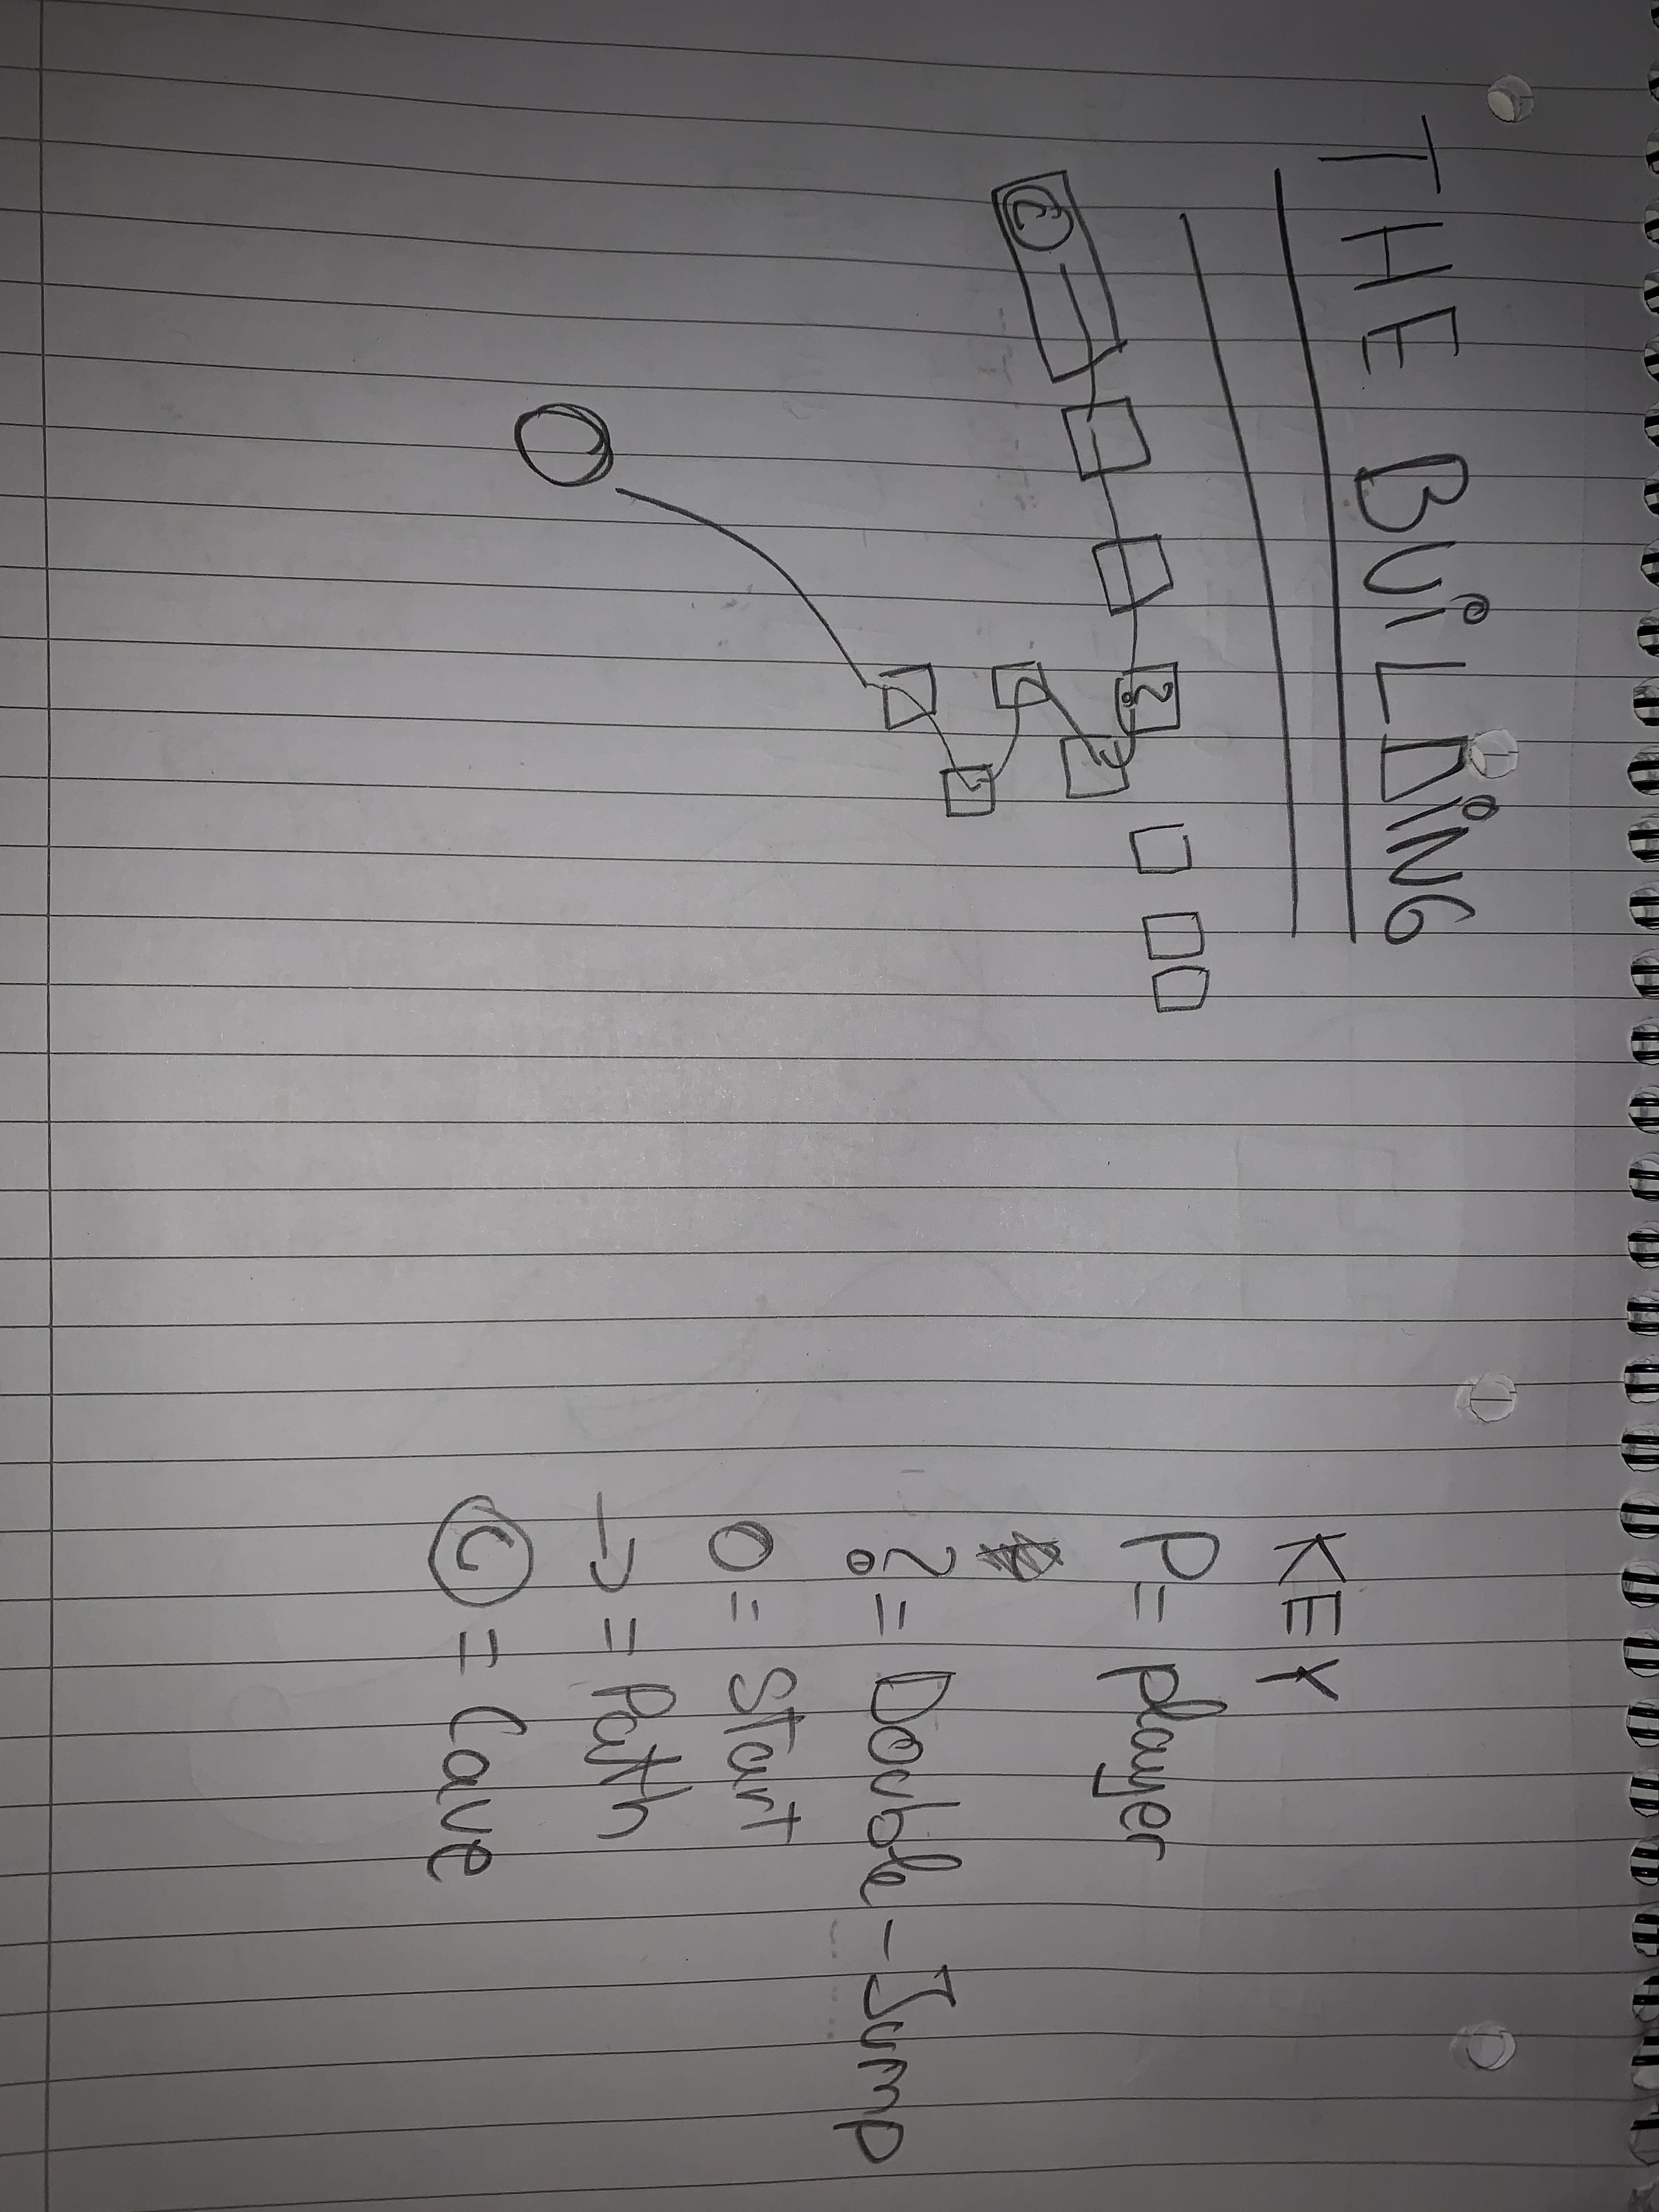 THE BUiLDiNG
C
2
KEY
P = player
2o = Double-Jump
O = Start
→ = Path
C = Cave